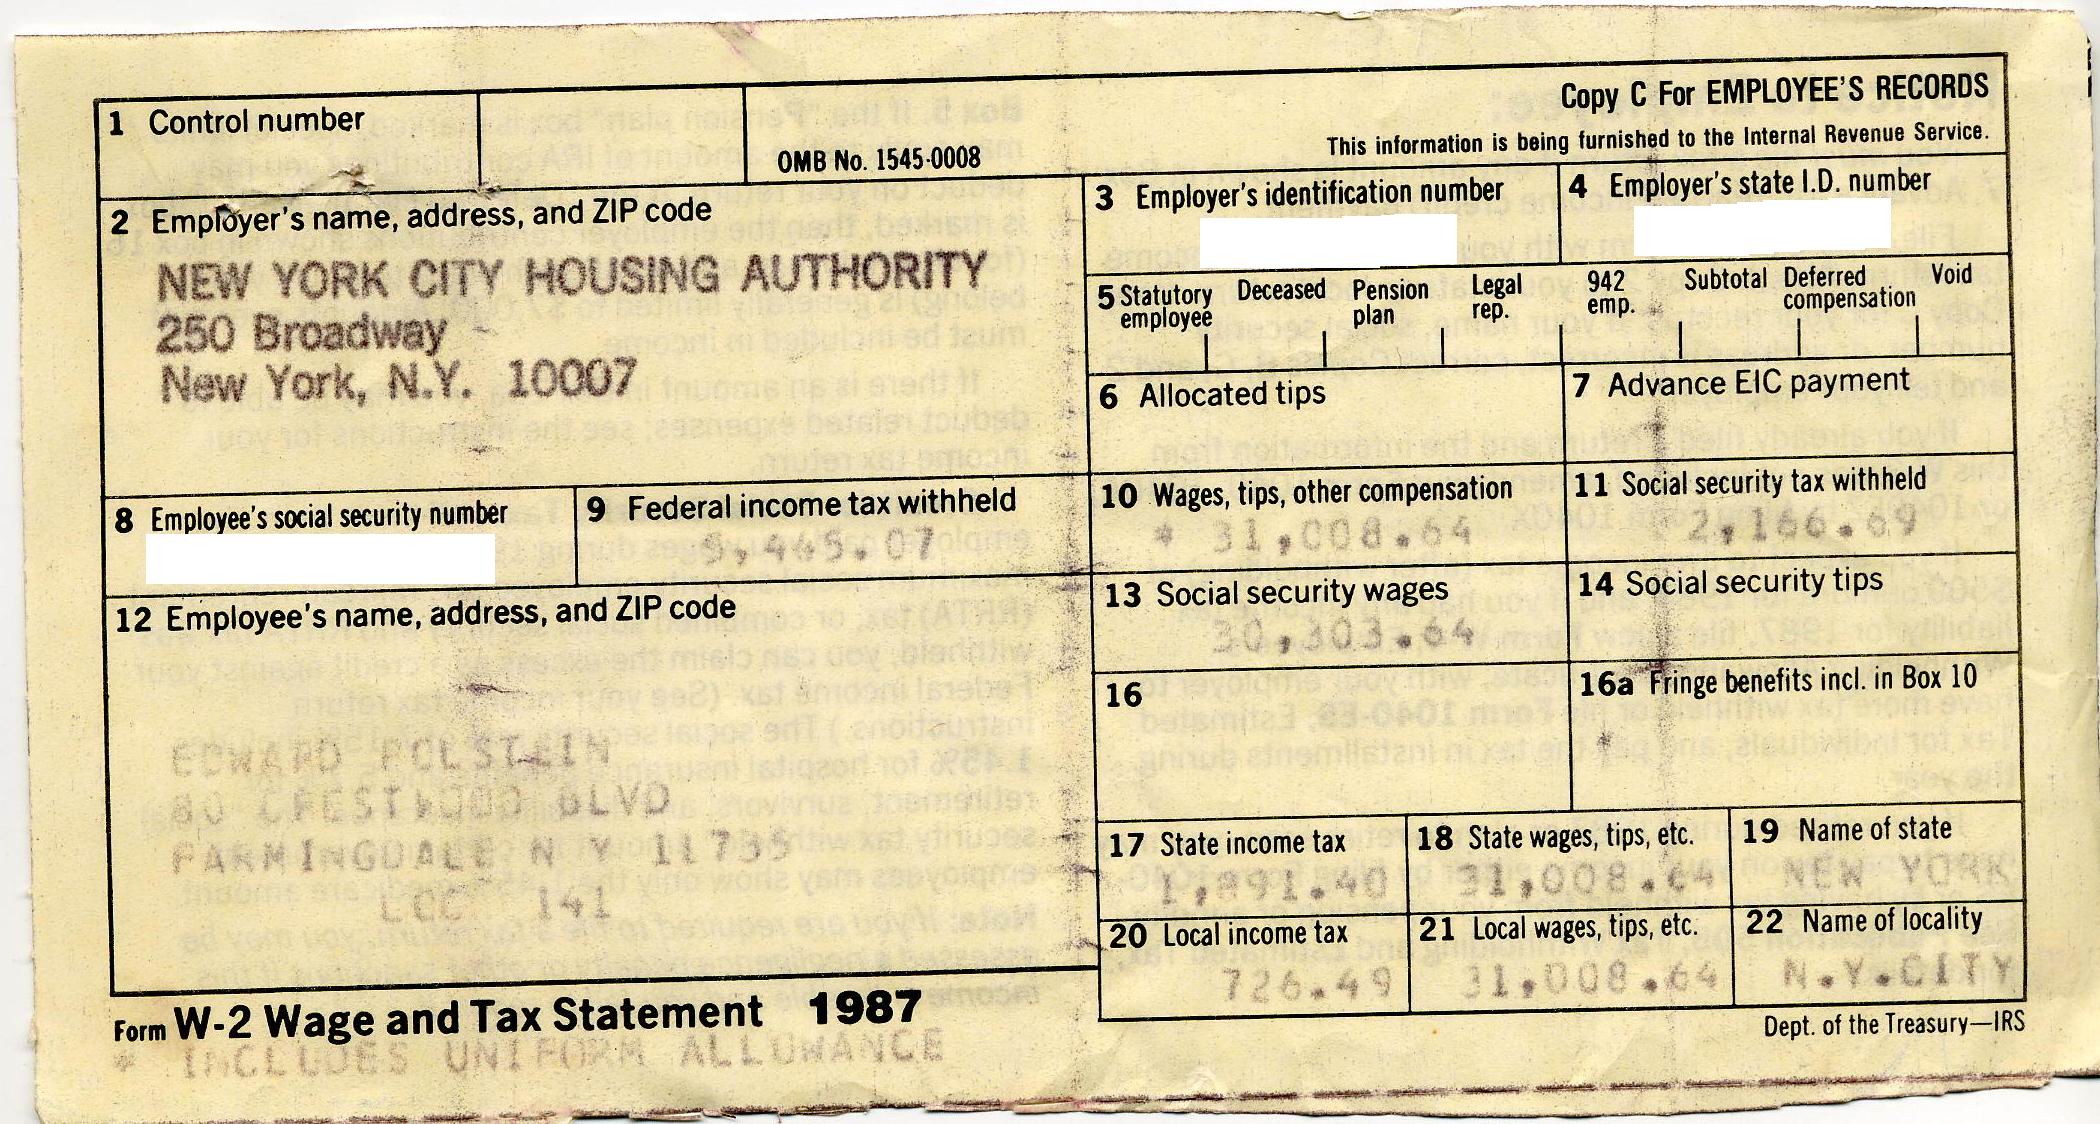 Copy C For EMPLOYEE'S RECORDS
This information is being furnished to the Internal Revenue Service.
1 Control number
OMB No. 1545-0008
2 Employer's name, address, and ZIP code
NEW YORK CITY HOUSING AUTHORITY
250 Broadway
New York, N.Y. 10007
3 Employer's identification number
4 Employer's state I.D. number
5 Statutory employee
Deceased
Pension plan
Legal rep.
942 emp.
Subtotal
Deferred compensation
Void
6 Allocated tips
7 Advance EIC payment
8 Employee's social security number
9 Federal income tax withheld
5,465.07
10 Wages, tips, other compensation
* 31,008.64
11 Social security tax withheld
2,166.69
12 Employee's name, address, and ZIP code
EDWARD POLSTEIN
80 CRESTWOOD BLVD
FARMINGDALE N Y 11735
LOC 141
13 Social security wages
30,303.64
14 Social security tips
16
16a Fringe benefits incl. in Box 10
*
17 State income tax
1,891.40
18 State wages, tips, etc.
31,008.64
19 Name of state
NEW YORK
20 Local income tax
726.49
21 Local wages, tips, etc.
31,008.64
22 Name of locality
N.Y.CITY
Form W-2 Wage and Tax Statement 1987
Dept. of the Treasury—IRS
* INCLUDES UNIFORM ALLOWANCE